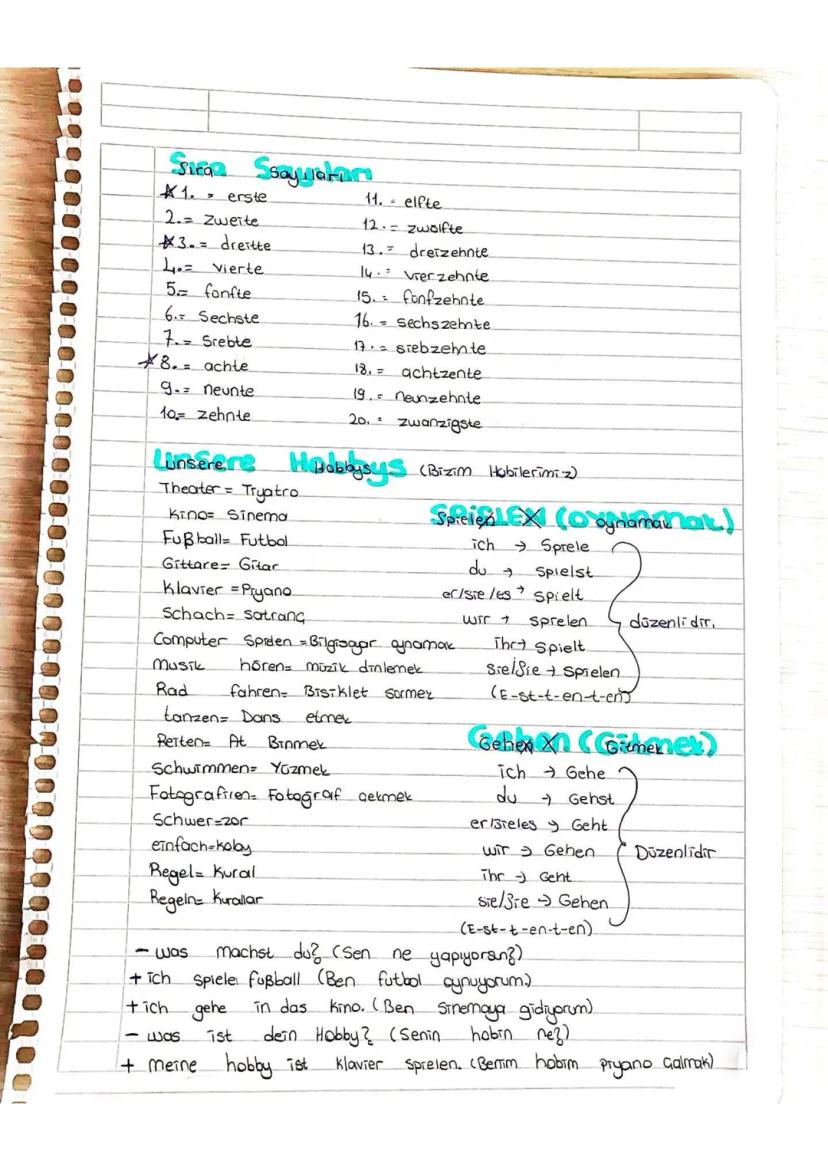 Sıra Sayıları
★ 1. = erste
2. = zweite
★ 3. = dreitte
4. = vierte
5. = fonfte
6. = Sechste
7. = Siebte
★ 8. = achte
9. = neunte
10 = zehnte
11. = elfte
12. = zwolfte
13. = dreizehnte
14. = vierzehnte
15. = fonfzehnte
16. = sechszehnte
17. = siebzehnte
18. = achtzente
19. = neunzehnte
20. = zwanzigste
Unsere Hobbys (Bizim Hobilerimiz)
Theater = Tiyatro
Kino = Sinema
Fußball = Futbol
Gittare = Gitar
Klavier = Piyano
Schach = satranç
Computer Spielen = Bilgisayar oynamak
Musik hören = müzik dinlemek
Rad fahren = Bisiklet sürmek
tanzen = Dans etmek
Reiten = At Binmek
Schwimmen = Yüzmek
Fotografiren = Fotoğraf çekmek
Schwer = zor
einfach = kolay
Regel = Kural
Regeln = Kurallar
Spielen X (oynamak)
ich → Spiele
du → Spielst
er/sie/es → Spielt
wir → spielen
ihr → Spielt
sie/Sie → Spielen
düzenlidir.
(E-st-t-en-t-en)
Gehen X (Gitmek)
ich → Gehe
du → Gehst
er/sie/es → Geht
wir → Gehen
ihr → Geht
sie/Sie → Gehen
Düzenlidir
(E-st-t-en-t-en)
- was machst du? (Sen ne yapıyorsn?)
+ ich spiele fußball (Ben futbol oynuyorum)
+ ich gehe in das Kino. (Ben Sinemaya gidiyorum)
- was ist dein Hobby? (Senin hobin ne?)
+ meine hobby ist klavier spielen. (Benim hobim piyano çalmak)